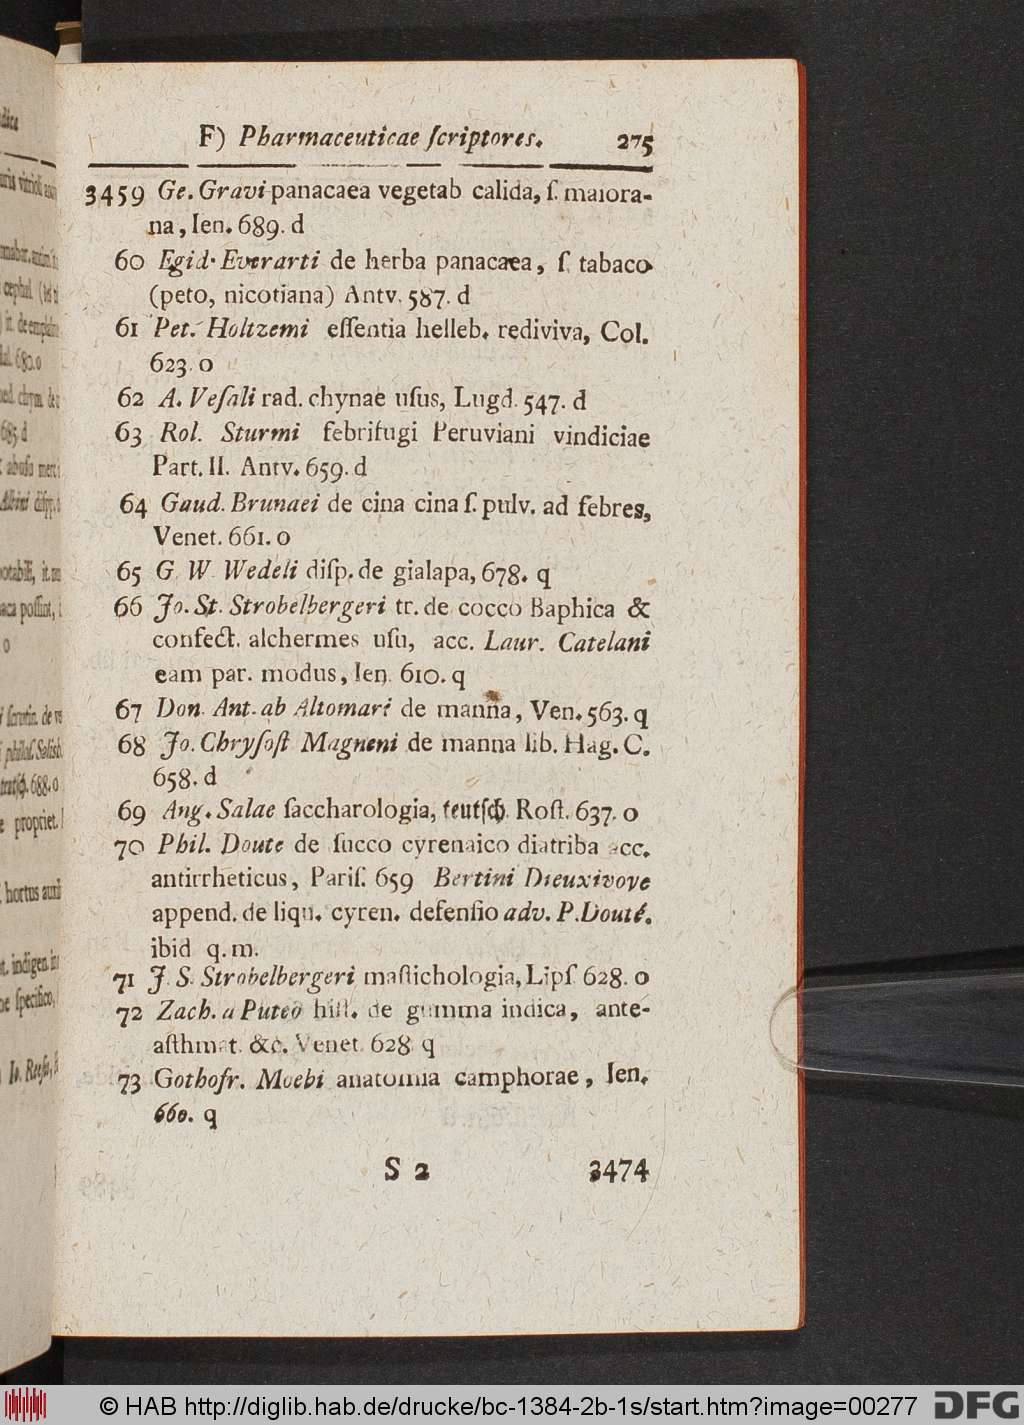 F) Pharmaceuticae ſcriptores. 275
3459 Ge. Gravi panacaea vegetab calida, ſ. maiora-
na, Ien. 689. d
60 Egid. Everarti de herba panacaea, ſ. tabaco
(peto, nicotiana) Antv. 587. d
61 Pet. Holtzemi eſſentia helleb. rediviva, Col.
623. o
62 A. Veſali rad. chynae uſus, Lugd. 547. d
63 Rol. Sturmi febrifugi Peruviani vindiciae
Part. II. Antv. 659. d
64 Gaud. Brunaei de cina cina ſ. pulv. ad febres,
Venet. 661. o
65 G W Wedeli diſp. de gialapa, 678. q
66 Jo. St. Strobelbergeri tr. de cocco Baphica &
confect. alchermes uſu, acc. Laur. Catelani
eam par. modus, Ien. 610. q
67 Don. Ant. ab Altomari de manna, Ven. 563. q
68 Jo. Chryſoſt Magneni de manna lib. Hag. C.
658. d
69 Ang. Salae ſaccharologia, teutſch. Roſt. 637. o
70 Phil. Doute de ſucco cyrenaico diatriba acc.
antirrheticus, Pariſ. 659 Bertini Dieuxivoye
append. de liqu. cyren. defenſio adv. P. Douté.
ibid q. m.
71 J. S. Strobelbergeri maſtichologia, Lipſ 628. o
72 Zach. a Puteo hiſt. de gumma indica, ante-
aſthmat. &c. Venet. 628 q
73 Gothofr. Moebi anatomia camphorae, Ien.
660. q
S 2 3474
© HAB http://diglib.hab.de/drucke/bc-1384-2b-1s/start.htm?image=00277 DFG